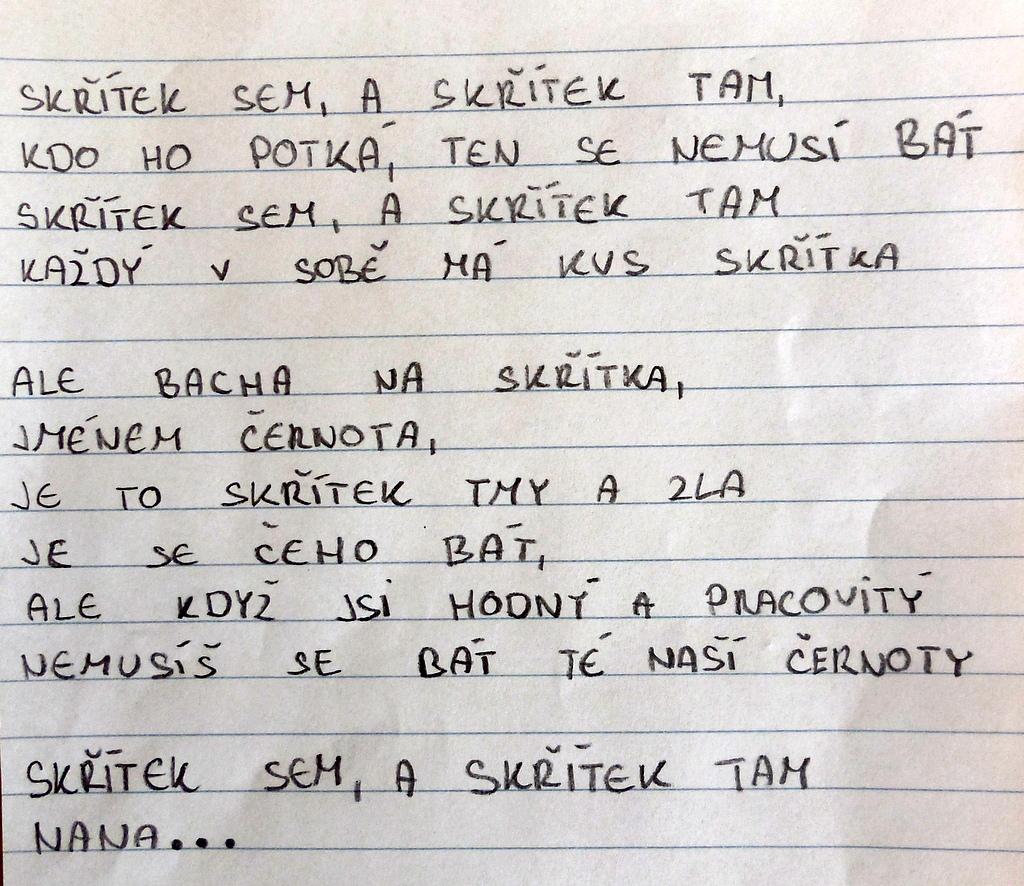 SKŘÍTEK SEM, A SKŘÍTEK TAM,
KDO HO POTKÁ, TEN SE NEMUSÍ BÁT
SKŘÍTEK SEM, A SKŘÍTEK TAM
KAŽDÝ V SOBĚ MÁ KUS SKŘÍTKA
ALE BACHA NA SKŘÍTKA,
JMÉNEM ČERNOTA,
JE TO SKŘÍTEK TMY A ZLA
JE SE ČEHO BÁT,
ALE KDYŽ JSI HODNÝ A PRACOVITÝ
NEMUSÍŠ SE BÁT TÉ NAŠÍ ČERNOTY
SKŘÍTEK SEM, A SKŘÍTEK TAM
NANA...